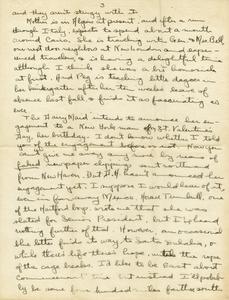 3
and they aren't stingy with it.
Mother is in Algiers at present, and after a run
through Italy, expects to spend about a month
around Cairo. She is traveling with Gen. & Mrs.
our next door neighbors at New London and
traveler, & is having a delightful time
although I think she was a bit homesick
at first. And Peg is teaching little dagoes in
her kindergarten after her ten weeks leave of
absence last fall & finds it as fascinating as
ever.
The Harry Maid intends to announce her en-
gagement to a New York man of St. Valentine's,
my birthday - I don't know whether I told
you of the engagement before or not. Now you
can't give me away any more by means of
newspaper clippings sent
from New Haven. But H.H. hasn't announced her
engagement yet. I suppose I would hear of it,
even in far away Mexico. Hoace Turnbull, one
of the Hartford boys wrote me that she was
slated for Senior President, but I've heard
nothing further of that. However, an occasional
she letter finds its way to Santa Eulalia, &
while there's life there's hope,
of the cage breaks. I'd like to be East about
commencement time but instead I'll probab-
ly be some five hundred miles farther south